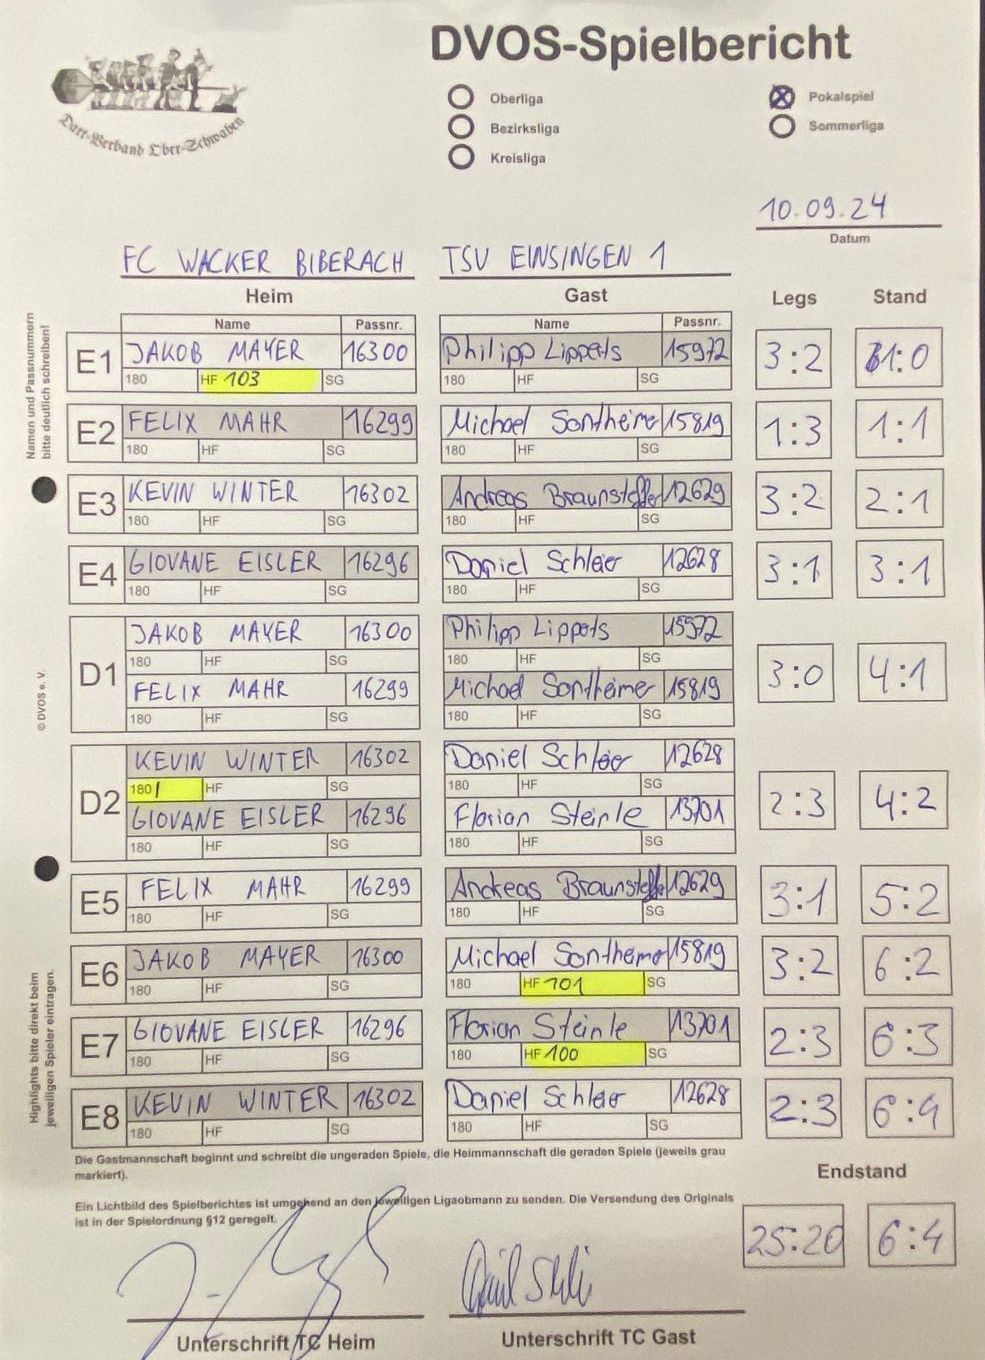 DVOS-Spielbericht
Dart-Verband Ober-Schwaben
Oberliga
Bezirksliga
Kreisliga
Pokalspiel
Sommerliga
10.09.24
Datum
FC WACKER BIBERACH TSV EINSINGEN 1
Heim Gast Legs Stand
Name Passnr. Name Passnr.
E1 JAKOB MAYER 16300 Philipp Lippets 15972 3:2 1:0
180 HF 103 SG 180 HF SG
E2 FELIX MAHR 16299 Michael Sontheimer 15819 1:3 1:1
180 HF SG 180 HF SG
E3 KEVIN WINTER 16302 Andreas 12629 3:2 2:1
180 HF SG 180 HF SG
E4 GIOVANE EISLER 16296 Daniel Schleier 12628 3:1 3:1
180 HF SG 180 HF SG
JAKOB MAYER 16300 Philipp Lippets 15972
180 HF SG 180 HF SG
D1 3:0 4:1
FELIX MAHR 16299 Michael Sontheimer 15819
180 HF SG 180 HF SG
KEVIN WINTER 16302 Daniel Schleier 12628
180 / HF SG 180 HF SG
D2 2:3 4:2
GIOVANE EISLER 16296 Florian Steinle 13701
180 HF SG 180 HF SG
E5 FELIX MAHR 16299 Andreas 12629 3:1 5:2
180 HF SG 180 HF SG
E6 JAKOB MAYER 16300 Michael Sontheimer 15819 3:2 6:2
180 HF SG 180 HF 101 SG
E7 GIOVANE EISLER 16296 Florian Steinle 13701 2:3 6:3
180 HF SG 180 HF 100 SG
E8 KEVIN WINTER 16302 Daniel Schleier 12628 2:3 6:4
180 HF SG 180 HF SG
Die Gastmannschaft beginnt und schreibt die ungeraden Spiele, die Heimmannschaft die geraden Spiele (jeweils grau
markiert).
Endstand
Ein Lichtbild des Spielberichtes ist umgehend an den jeweiligen Ligaobmann zu senden. Die Versendung des Originals
ist in der Spielordnung §12 geregelt.
25:20 6:4
Unterschrift TC Heim Unterschrift TC Gast
Namen und Passnummern
bitte deutlich schreiben!
© DVOS e. V.
Highlights bitte direkt beim
jeweiligen Spieler eintragen.